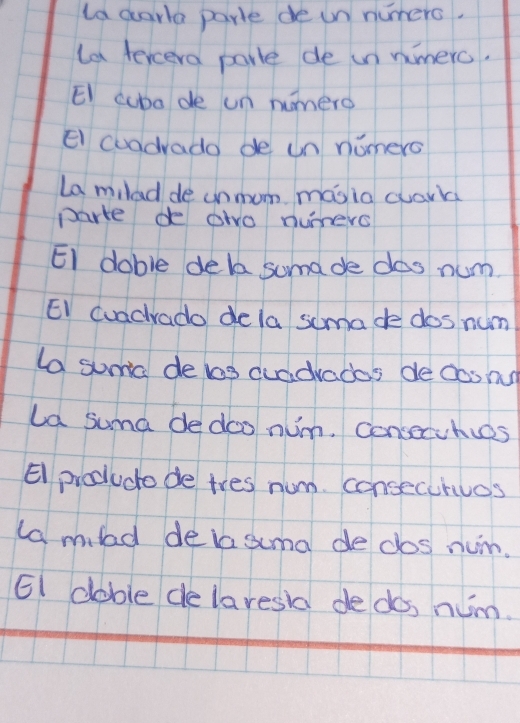 La cuarta parte de un número.
La tercera parte de un número.
El cubo de un número
El cuadrado de un número
La mitad de un num. más la cuarta
parte de otro número
El doble de la suma de dos num.
El cuadrado de la suma de dos num
La suma de los cuadrados de dos nu
La suma de dos núm. consecutivos
El producto de tres num. consecutivos
La mitad de la suma de dos núm.
El doble de la resta de dos núm.